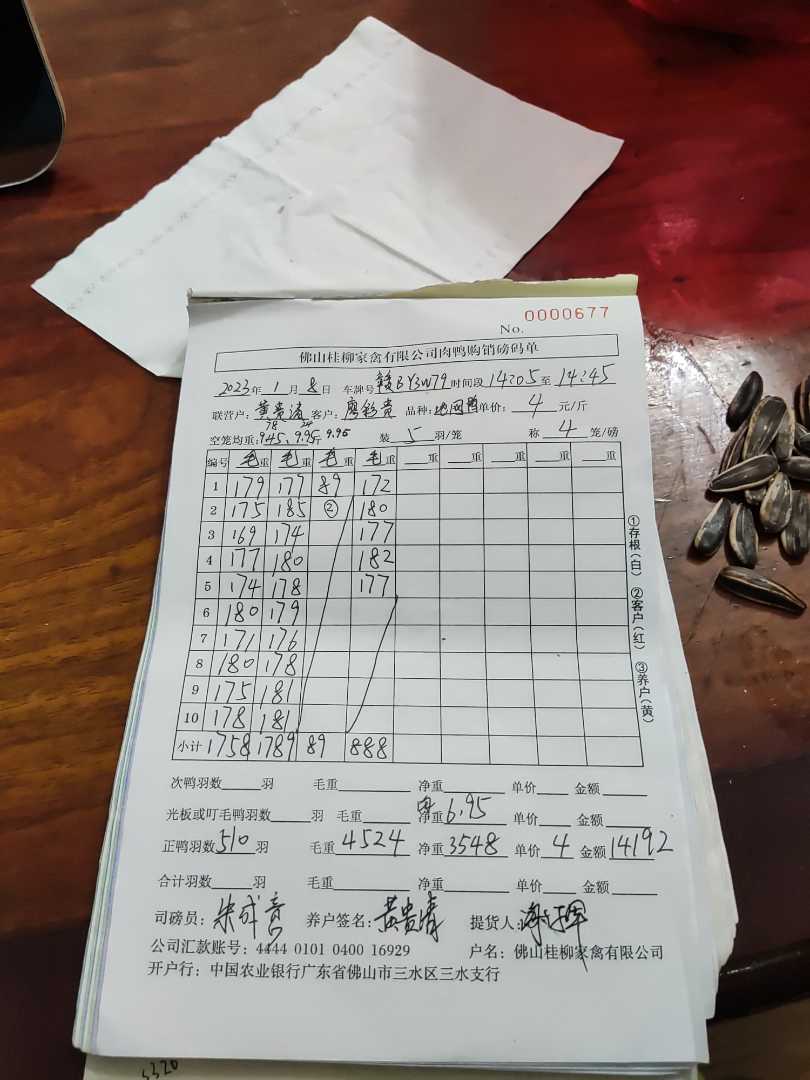 No. 0000677
佛山桂柳家禽有限公司肉鸭购销磅码单
2023年 1 月 8 日 车牌号 BY3W79 时间段 14:05 至 14:45
联营户: 黄贵清 客户: 廖彩贵 品种: 单价: 4 元/斤
78 24
空笼均重: 9.45、9.95斤 9.95 装 5 羽/笼 称 4 笼/磅
编号 毛重 毛重 毛重 毛重 重 重 重 重 重
1 179 177 89 172
2 175 185 ② 180
3 169 174 177
4 177 180 182
5 174 178 177
6 180 179
7 171 176
8 180 178
9 175 181
10 178 181
小计 1758 1789 89 888
①存根(白) ②客户(红) ③养户(黄)
次鸭羽数 羽 毛重 净重 单价 金额
6.95
光板或叮毛鸭羽数 羽 毛重 净重 单价 金额
正鸭羽数 510 羽 毛重 4524 净重 3548 单价 4 金额 14192
合计羽数 羽 毛重 净重 单价 金额
司磅员: 养户签名: 黄贵清 提货人:
公司汇款账号: 4444 0101 0400 16929 户名: 佛山桂柳家禽有限公司
开户行: 中国农业银行广东省佛山市三水区三水支行
5320